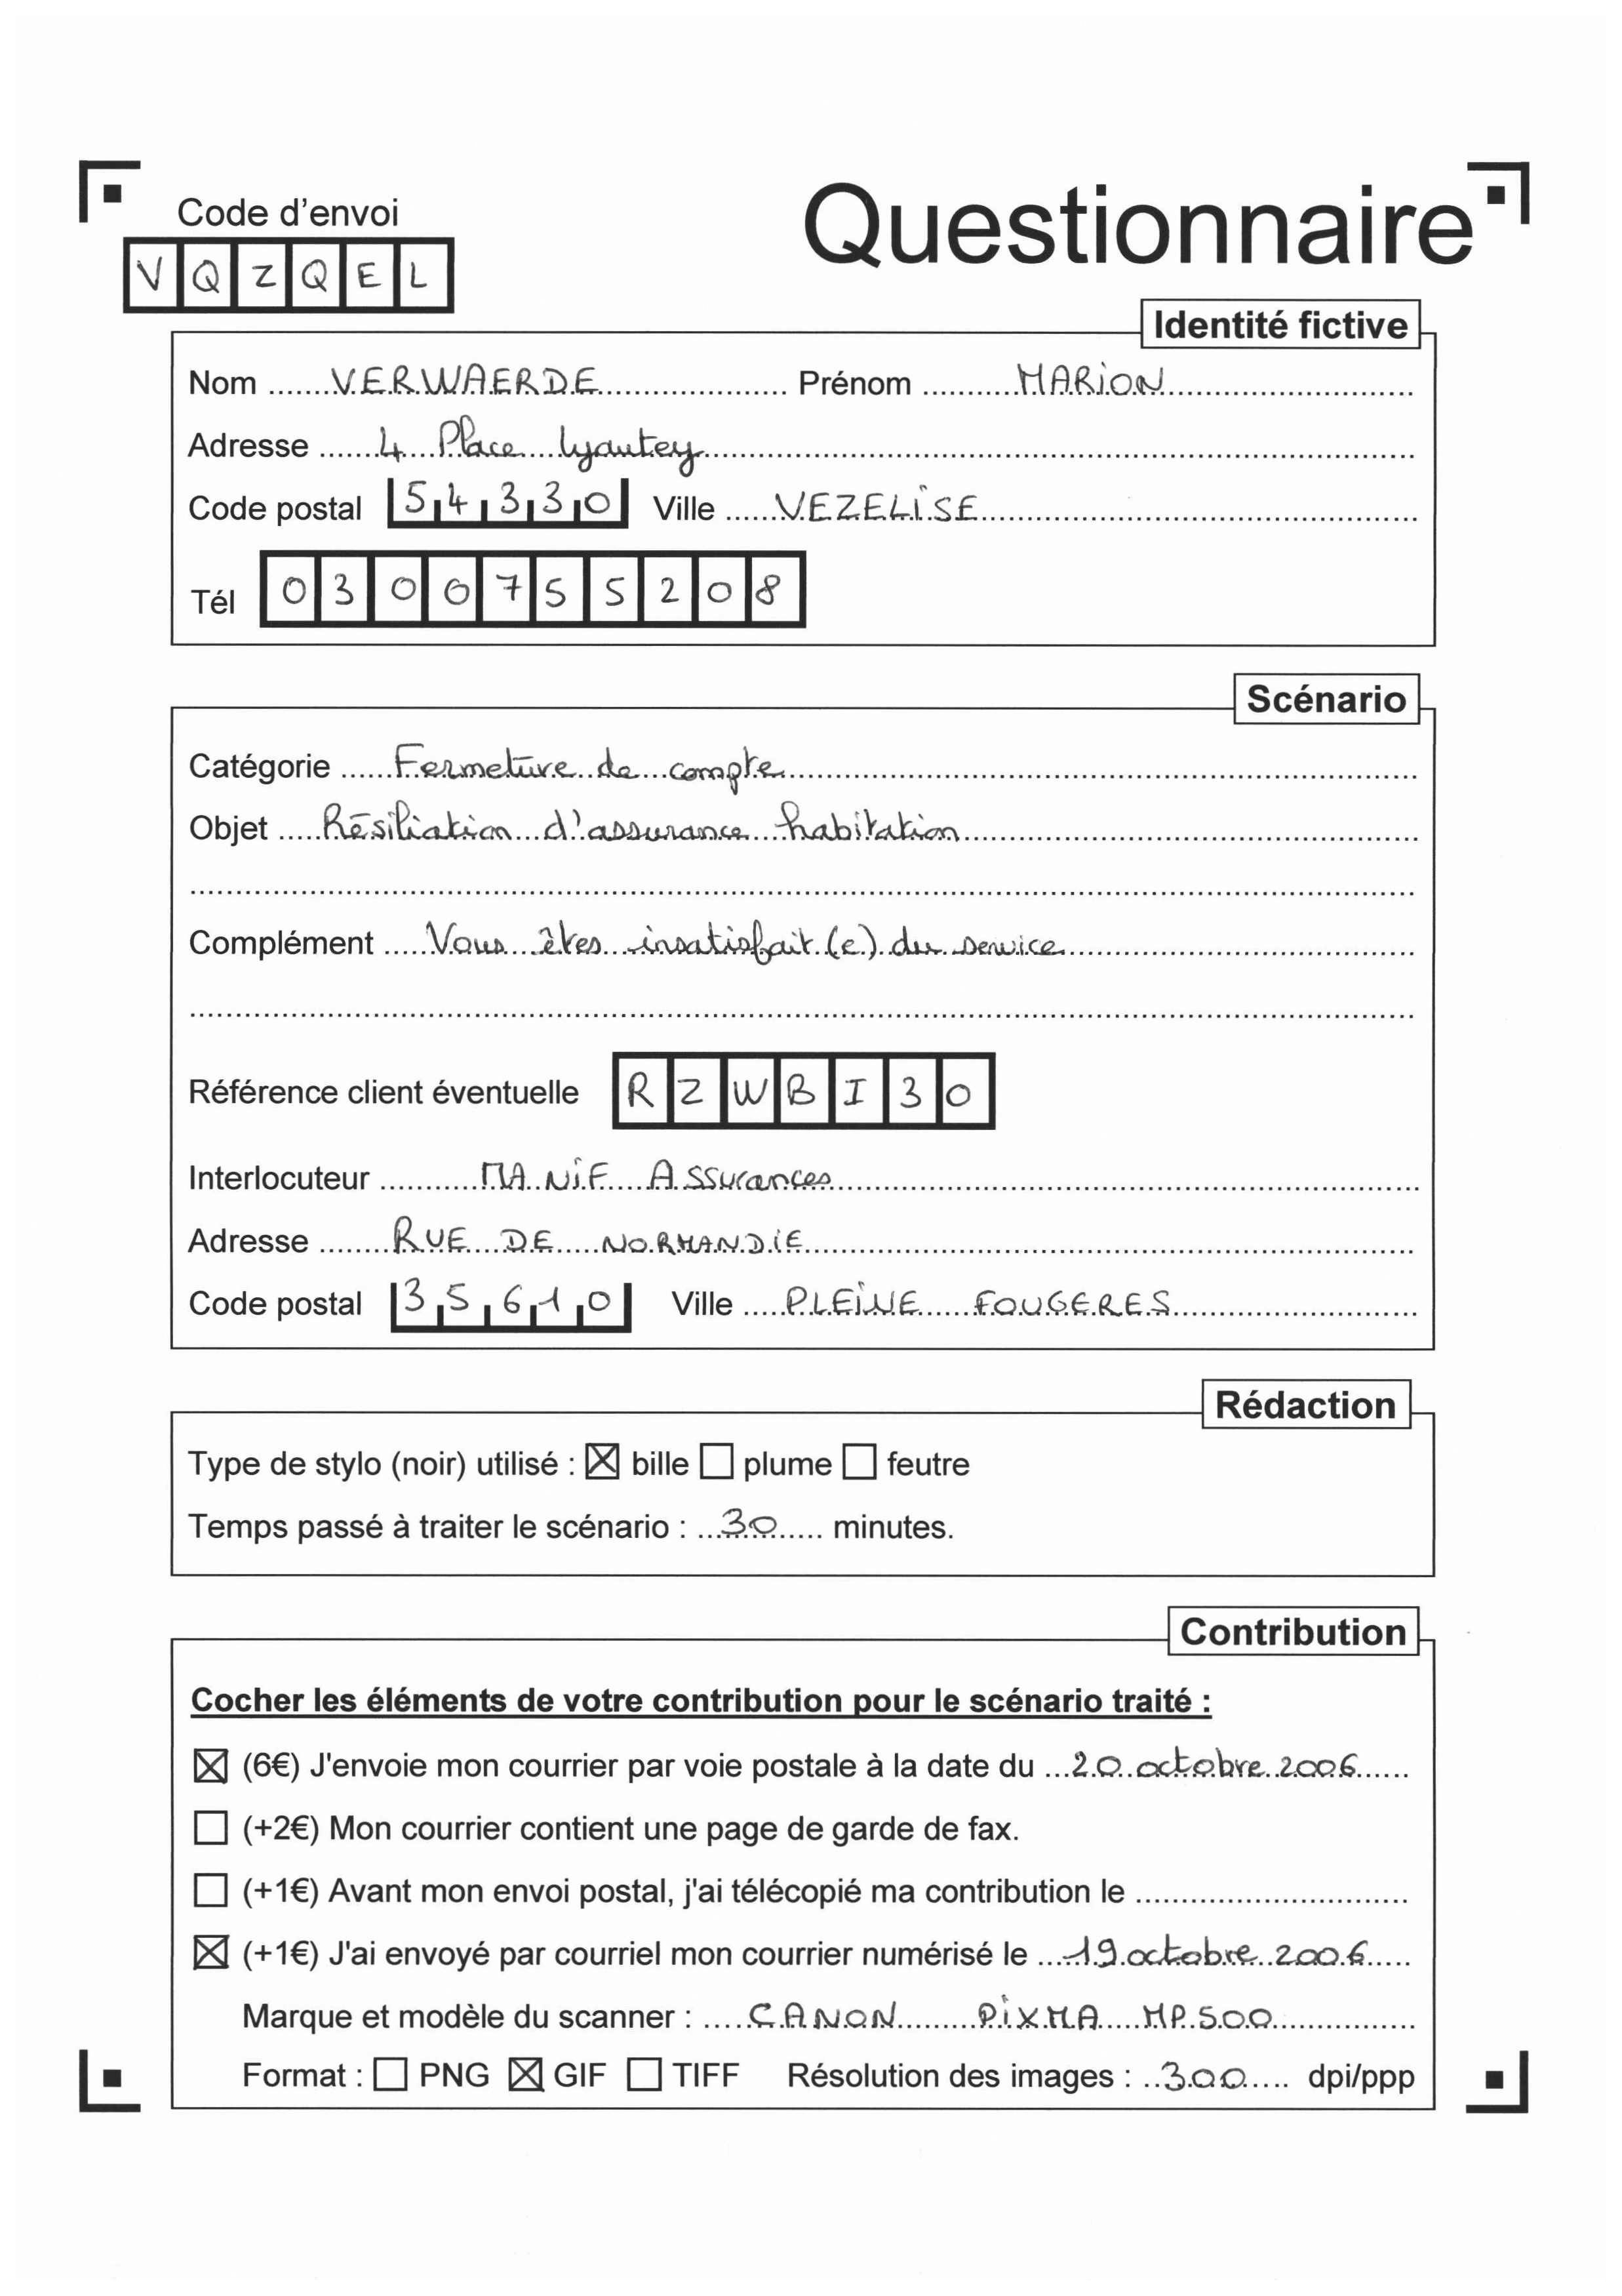 Questionnaire
Code d'envoi
VQZQEL
Identité fictive
Nom ...... VERWAERDE ...... Prénom ...... MARION ......
Adresse ...... 4 Place Lyautey ......
Code postal 54330 Ville ...... VEZELISE ......
Tél 0300755208
Scénario
Catégorie ...... Fermeture de compte ......
Objet ..... Résiliation d'assurance habitation ......
Complément ..... Vous êtes insatisfait(e) du service ......
Référence client éventuelle RZWBI30
Interlocuteur ...... MANIF Assurances ......
Adresse ...... RUE DE NORMANDIE ......
Code postal 35610 Ville ..... PLEINE FOUGERES ......
Rédaction
Type de stylo (noir) utilisé : ☒ bille ☐ plume ☐ feutre
Temps passé à traiter le scénario : ... 30 ...... minutes.
Contribution
Cocher les éléments de votre contribution pour le scénario traité :
☒ (6€) J'envoie mon courrier par voie postale à la date du ... 20 octobre 2006 ......
☐ (+2€) Mon courrier contient une page de garde de fax.
☐ (+1€) Avant mon envoi postal, j'ai télécopié ma contribution le ..............................
☒ (+1€) J'ai envoyé par courriel mon courrier numérisé le .... 19 octobre 2006 .....
Marque et modèle du scanner : ..... CANON PIXMA MP500 ......
Format : ☐ PNG ☒ GIF ☐ TIFF Résolution des images : .. 300 ..... dpi/ppp